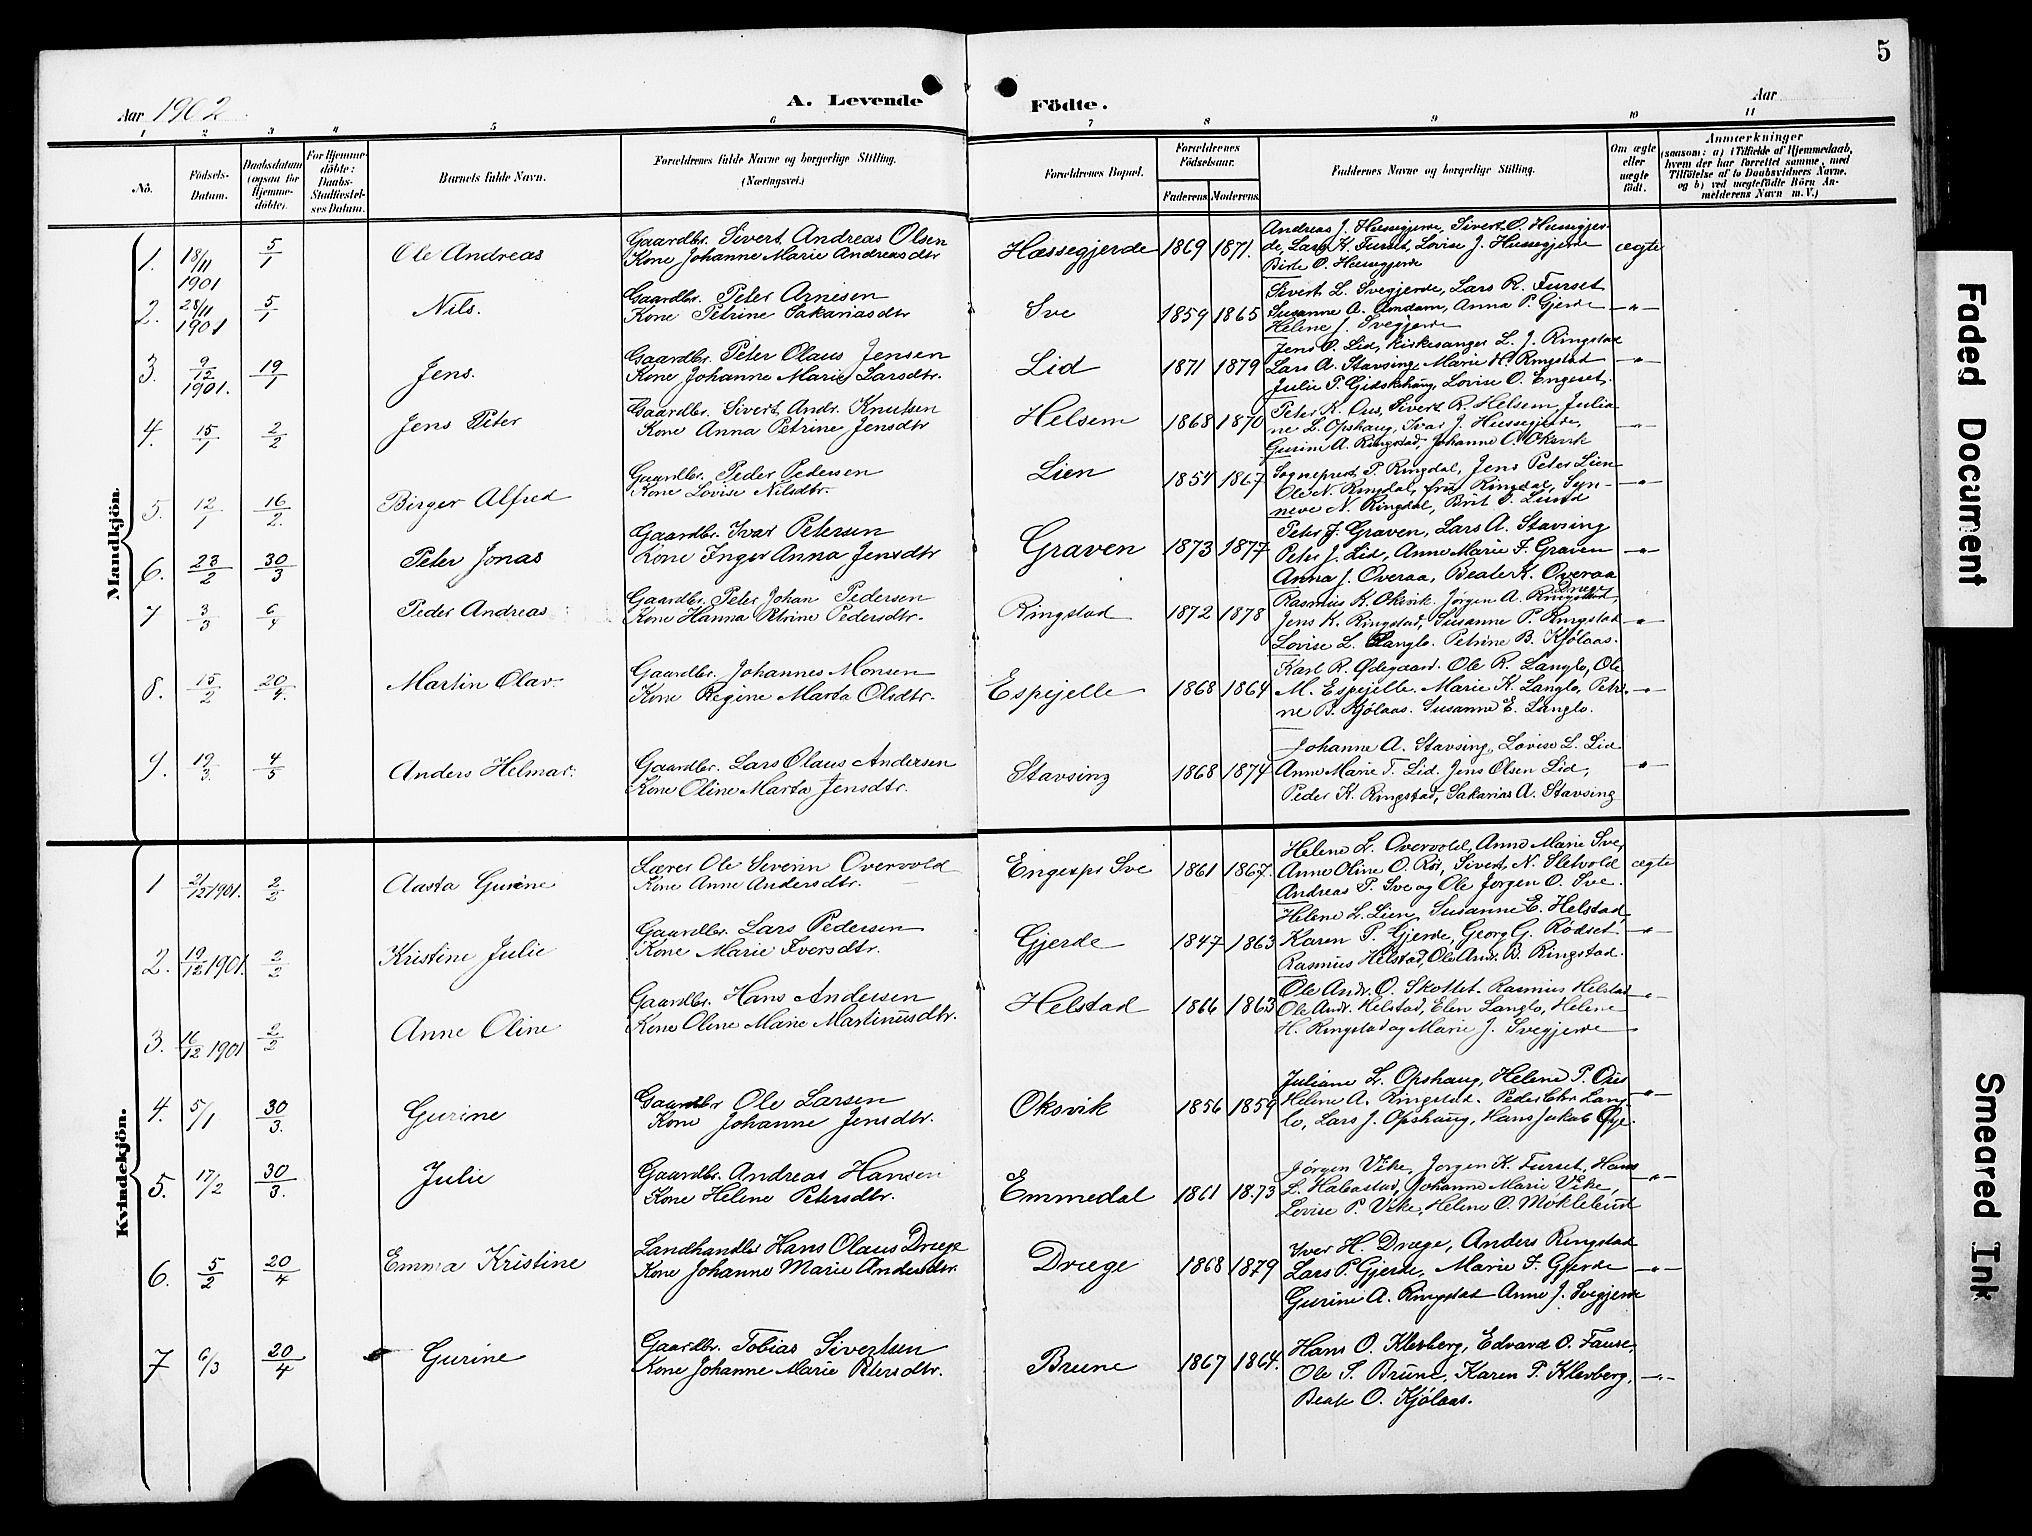 5
Aar 1902
A. Levende
Födte.
Aar
1 2 3 4 5 6 7 8 9 10 11
No.
Födsels-
Datum.
Daabsdatum
(ogsaa for
Hjemme-
döbte).
For Hjemme-
döbte:
Daabs-
Stadfæstel-
ses Datum.
Barnets fulde Navn.
Forældrenes fulde Navne og borgerlige Stilling.
(Næringsvei.)
Forældrenes Bopæl.
Forældrenes
Födselsaar.
Faderens. Moderens.
Faddernes Navne og borgerlige Stilling.
Om ægte
eller
uægte
födt.
Anmærkninger
(saasom: a) i Tilfælde af Hjemmedaab,
hvem der har forrettet samme, med
Tilföielse af to Daabsvidners Navne.
og b) ved uægtefödte Börn An-
melderens Navn m.V.)
Mandkjön.
1. 18/11 1901 5/1 Ole Andreas
Gaardbr. Sivert Andreas Olsen
Kone Johanne Marie Andreasdtr
Hæssegjerde 1869 1871.
Andreas J. Hussegjerde, Sivert O. Hussegjer-
de, Lars K. Furset, Lovise J. Hussegjerde
Birte O. Hussegjerde
ægte
2. 28/11 1901 5/1 Nils.
Gaardbr. Peter Arnesen
Kone Petrine Sakariasdtr
Sve 1859 1865
Sivert L. Svegjerde, Lars R. Furset
Susanne A. Amdam, Anna P. Gjerde
Helene J. Svegjerde
-"-
3. 9/12 1901. 19/1 Jens.
Gaardbr. Peter Olaus Jensen
Kone Johanne Marie Larsdtr.
Lid 1871 1879
Jens O. Lid, kirkesanger L. J. Ringstad
Lars A. Stavsing, Marie H. Ringstad
Julie P. Gidskehaug, Lovise O. Engeset.
-"-
4. 15/1 2/2 Jens Peter
Gaardbr. Sivert Andr. Knutsen
Kone Anna Petrine Jensdtr
Helsem 1868 1870
Peter K. Ous, Sivert R. Helsem, Julia-
ne L. Opshaug, Ivar J. Hussegjerde,
Gurine A. Ringstad, Johanne O. Oksvik
-"-
5. 12/1 16/2. Birger Alfred
Gaardbr. Peder Pedersen
Kone Lovise Nilsdtr.
Lien 1854 1867
Sogneprest P. Ringdal, Jens Peter Lien
Ole N. Ringdal, frue Ringdal, Syn-
neve N. Ringdal, Brit O. Lunde
-"-
6. 23/2 30/3 Peter Jonas
Gaardbr. Ivar Petersen
Kone Inger Anna Jensdtr
Graven 1873 1877
Peter J. Graven, Lars A. Stavsing
Peter J. Lid, Anne Marie F. Graven
Anna J. Overaa, Beate K. Overaa
-"-
7 3/3 6/4 Peder Andreas
Gaardbr. Peter Johan Pedersen
Kone Hanna Petrine Pedersdtr.
Ringstad 1872 1878
Rasmus K. Oksvik. Jørgen A. Ringstad,
Jens K. Ringstad, Susanne P. Ringstad
Lovise L. Langlo. Petrine B. Kjølaas.
-"-
8. 15/2 20/4. Martin Olav.
Gaardbr. Johannes Monsen
Kone Regine Marta Olsdtr.
Espejelle 1868 1864
Karl R. Ødegaard. Ole R. Langlo, Ole
M. Espejelle. Marie K. Langlo, Petri-
ne B. Kjølaas. Susanne E. Langlo.
-"-
9. 19/3. 4/5 Anders Helmar.
Gaardbr. Lars Olaus Andersen
Kone Oline Marta Jensdtr.
Stavsing 1868 1874
Johanne A. Stavsing, Lovise L. Lid
Anne Marie T. Lid. Jens Olsen Lid,
Peder K. Ringstad, Sakarias A. Stavsing
-"-
Kvindekjön.
1 21/12 1901. 2/2 Aasta Gurine
Lærer Ole Severin Overvold
Kone Anne Andersdtr.
Engesps Sve 1861 1867.
Helene L. Overvold, Anne Marie Sve,
Anne Oline O. Rör, Sivert N. Sletvold
Andreas P. Sve og Ole Jørgen O. Sve.
ægte
2. 19/12 1901. 2/2 Kristine Julie
Gaardbr. Lars Pedersen
Kone Marie Iversdtr.
Gjerde 1847 1863
Helene L. Lien, Susanne E. Helstad,
Karen P. Gjerde, Georg G. Rödset
Rasmus Helstad, Ole Andr. B. Ringstad.
-"-
3. 16/12 1901 2/2 Anne Oline
Gaardbr. Hans Andersen
Kone Olene Marie Martinusdtr.
Helstad 1866 1863
Ole Andr. O. Skottet. Rasmus Helstad
Ole Andr. Helstad, Elen Langlo, Helene
H. Ringstad og Marie J. Svegjerde
-"-
4. 5/1 30/3. Gurine
Gaardbr Ole Larsen
Kone Johanne Jensdtr.
Oksvik 1856 1859
Juliane L. Opshaug, Helene P. Ous
Helene A. Ringstad. Peder Chr. Lang-
lo, Lars J. Opshaug, Hans Jakob Øye.
-"-
5. 17/2 30/3. Julie
Gaardbr. Andreas Hansen
Kone Helene Petersdtr.
Emmedal 1861 1873
Jørgen Vike, Jørgen K. Furset, Hans
L. Habostad, Johanne Marie Vike,
Lovise P. Vike, Helene O. Moklebust
-"-
6. 5/2 20/4 Emma Kristine
Landhandler Hans Olaus Dræge
Kone Johanne Marie Andersdtr.
Dræge 1868 1879
Iver H. Dræge, Anders Ringstad
Lars P. Gjerde, Marie F. Gjerde
Gurine A. Ringstad Anne J. Svegjerde
-"-
7 6/3 20/4 Gurine
Gaardbr. Tobias Sivertsen
Kone Johanne Marie Petersdtr.
Brune 1867 1864.
Hans O. Klevberg, Edvard O. Fause,
Ole S. Brune, Karen P. Klevberg,
Beate O. Kjølaas.
-"-
Faded Document
Smeared Ink